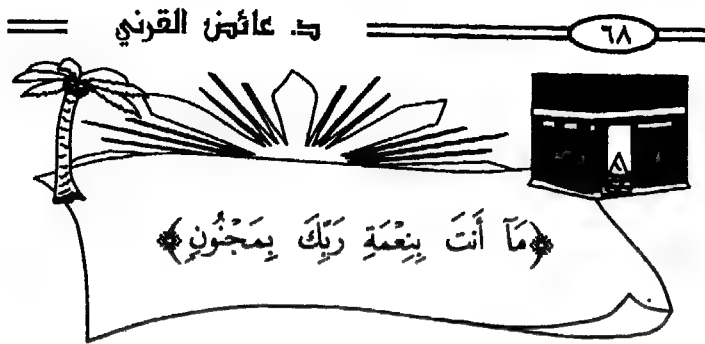 د. عائض القرني
٦٨
﴿مَآ أَنتَ بِنِعْمَةِ رَبِّكَ بِمَجْنُونٍ﴾